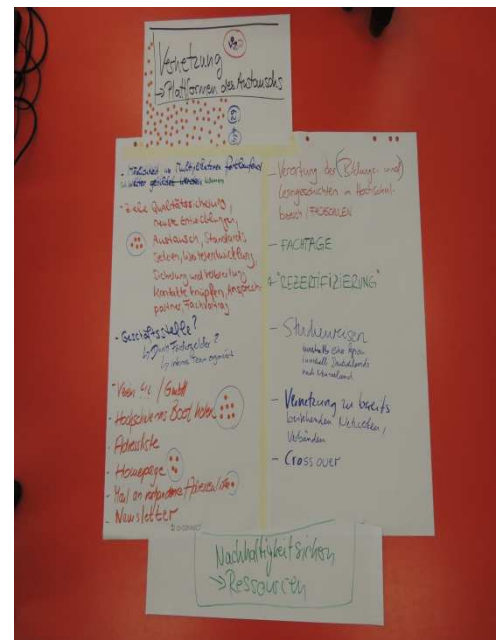 Vernetzung
→ Plattformen des Austauschs
weiter gebildet werden können
- Ziele Qualitätssicherung,
neueste Entwicklungen,
Austausch, Standards
setzen, Weiterentwicklung,
Sicherung und Verbreitung
Kontakte knüpfen, Ansprech-
partner, Fachvortrag
- Geschäftsstelle?
↳ durch Fördergelder?
↳ internes Team organisiert
- Verein e.V. / GmbH
- Hochschule ins Boot holen
- Adressliste
- Homepage
- Mail an vorhandene Adressenliste
- Newsletter
- Verortung der (Bildungs- und)
Lerngeschichten im Hochschul-
bereich / FACHSCHULEN
- FACHTAGE
"REZERTIFIZIERUNG"
- Studienreisen
innerhalb Deutschlands
nach Neuseeland
- Vernetzung zu bereits
bestehenden Netzwerken,
Verbänden
- Crossover
Nachhaltigkeit sichern
→ Ressourcen